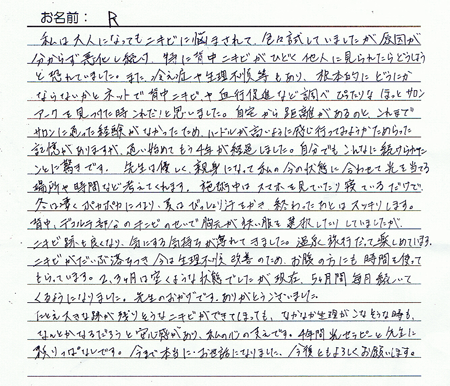 お名前: R
私は大人になってもニキビに悩まされて、色々試していましたが原因が
分からず悪化し続け、特に背中ニキビがひどく他人に見られたらどうしよう
と恐れていました。また、冷え症や生理不順等もあり、根本的にどうにか
ならないかとネットで背中ニキビや血行促進など調べ ぴったりな ほっとサロン
を見つけた時これだ!と思いました。自宅から距離があるのと、これまで
サロンに通った経験がなかったため、ハードルが高いように感じ行ってみようかためらった
記憶がありますが、通い始めてもう4年が経過しました。自分でもこんなに続けられた
ことに驚きです。先生は優しく、親身になって私の今の状態に合わせて光を当てる
場所や時間など考えてくれます。施術中はスマホを見ていたり寝ているだけで、
冬は暑くポカポカになり、夏はびっしり汗をかき 終わったあとはスッキリします。
背中、デコルテ部分のニキビのせいで胸元が狭い服を選択したりしていましたが、
ニキビ跡も良くなり、気にする気持ちが薄れてきました。温泉旅行だって楽しめています。
ニキビがだいぶ落ちつき 今は生理不順改善のため、お腹の方にも時間を使って
もらっています。2,3ヶ月は空くような状態でしたが現在、5ヶ月間毎月続いて
くるようになりました。先生のおかげです。ありがとうございました。
たとえ大きな跡が残りそうなニキビができてしまっても、なかなか生理がこなそうな時も、
なんとかなるだろうと安心感があり、私の心の支えです。特間光セラピーと先生に
頼りっぱなしです。今まで本当にお世話になりました、今後ともよろしくお願いします。